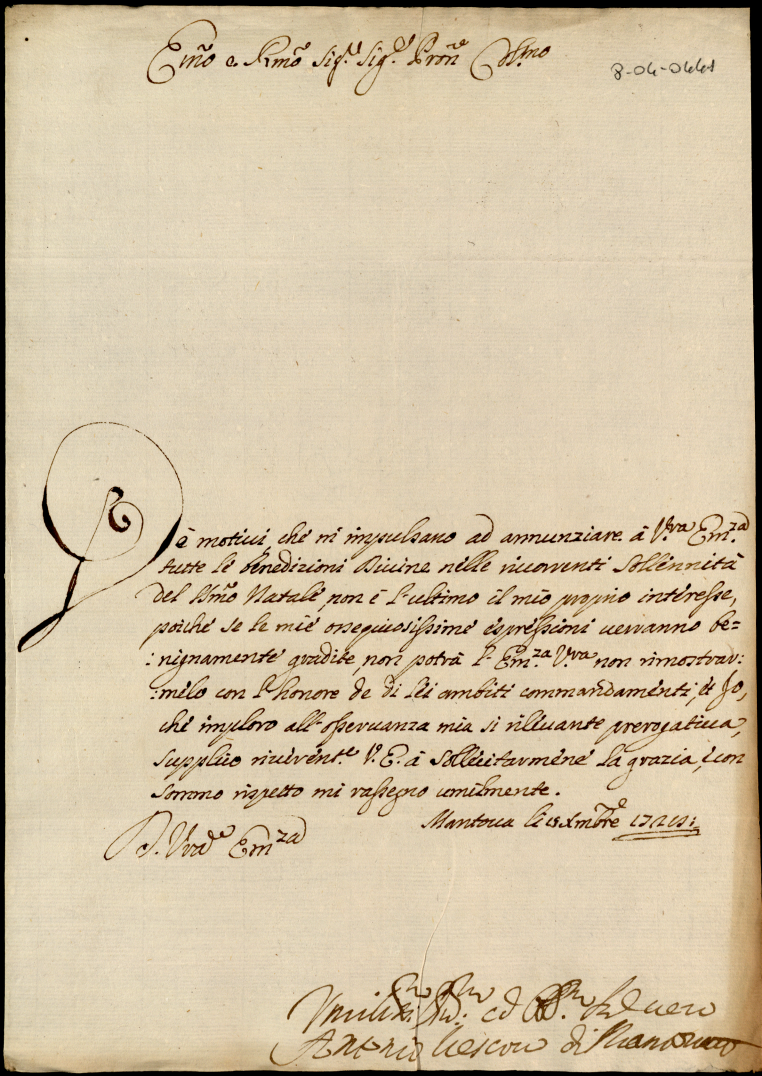 Em̃o e Rm̃o Sig.r Sig.r Pron̄e Col.mo
8-04-0441
Dè motivi, che m'impulsano ad annunziare à V.ra Em.za
tutte le benedizioni Divine nelle ricorrenti Sollennità
del Sm̃o Natale, non è l'ultimo il mio proprio intéresse,
poiche se le mie ossequiosissime espressioni verranno be=
:nignamente gradite, non potrà l'Em.za V.ra non rimostrar:
:melo con l'honore de di Lei ambiti commandamenti, et Jo,
che imploro all'osservanza mia si rillevante prerogativa,
supplico riverent.e V.E. à Sollecitarmene la grazia, è con
sommo rispetto mi rassegno umilmente.
Mantova li Xm̃bre
D. V.ra Em.za
Antonio Vescovo di Mantova